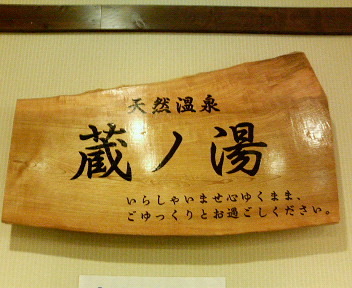 天然温泉
蔵ノ湯
いらしゃいませ心ゆくまま、
ごゆっくりとお過ごしください。